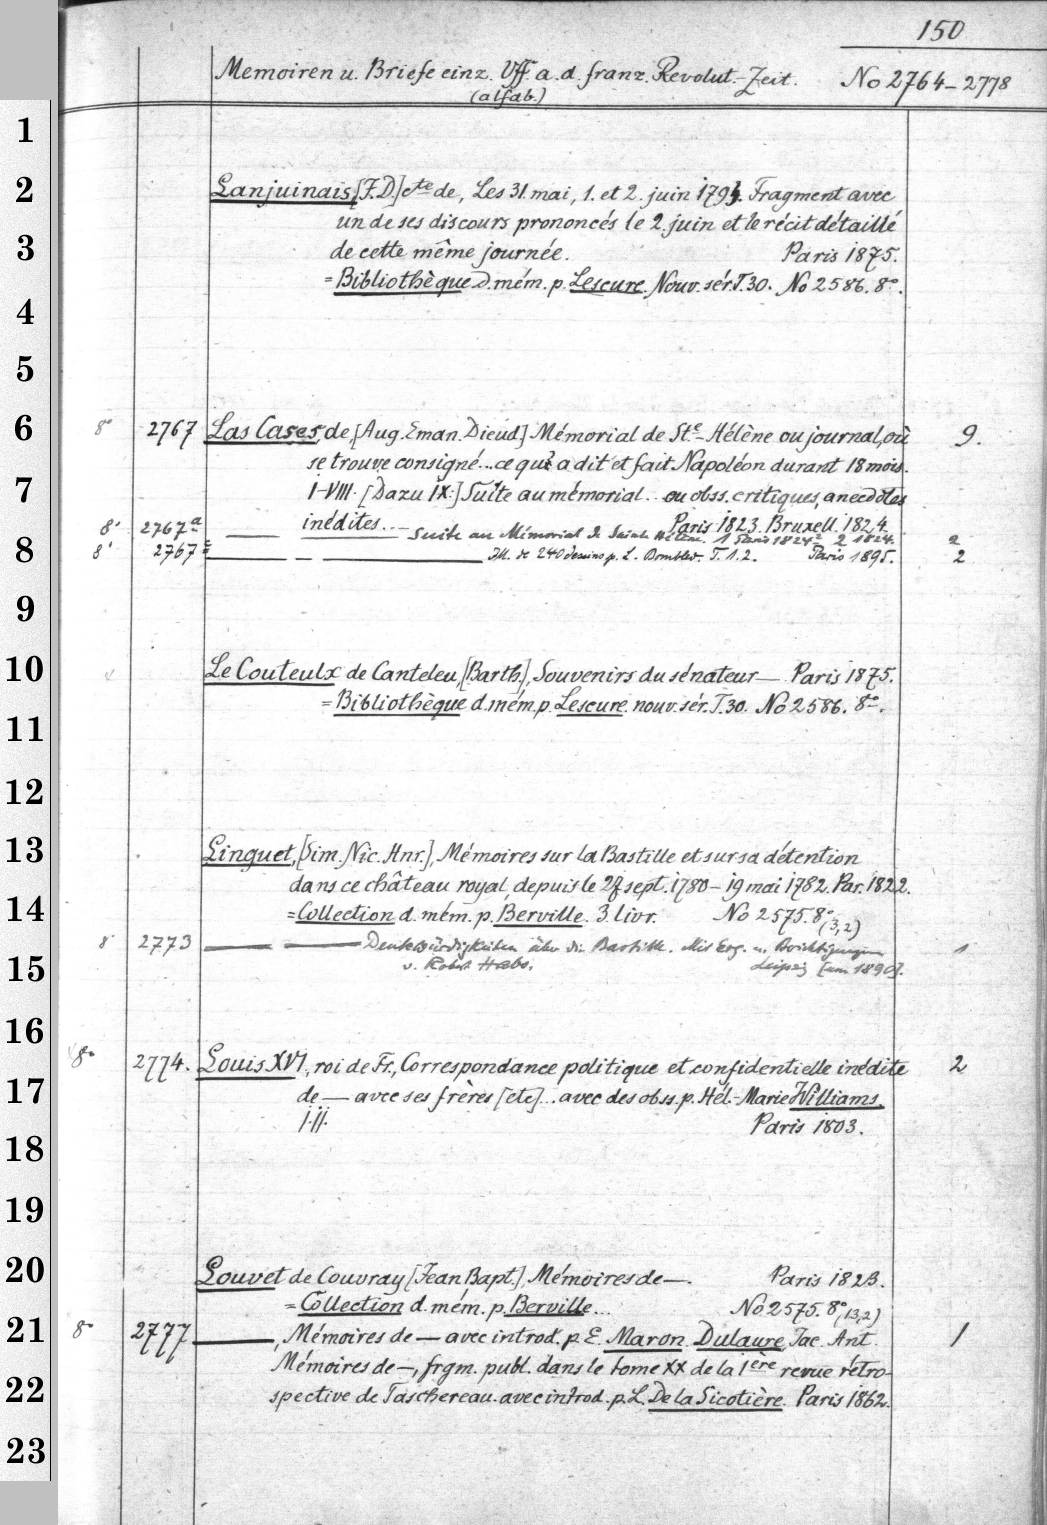 150
Memoiren u. Briefe einz. Vff. a. d. franz. Revolut.-Zeit. No 2764-2778
(alfab.)
1
2
3
4
5
6
7
8
9
10
11
12
13
14
15
16
17
18
19
20
21
22
23
Lanjuinais, [J.D.] cte de, Les 31. mai, 1. et 2. juin 1793. Fragment avec
un de ses discours prononcés le 2. juin et le récit détaillé
de cette même journée. Paris 1875.
= Bibliothèque d. mém. p. Lescure. Nouv. sér. T.30. No 2586. 8°.
8° 2767 Las Cases, de, [Aug. Eman. Dieud] Mémorial de Ste-Hélène ou journal, où 9.
se trouve consigné... ce qu'a dit et fait Napoléon durant 18 mois.
I-VIII. [Dazu IX:] Suite au mémorial... ou obss. critiques, anecdotes
inédites... Paris 1823. Bruxell. 1824.
8° 2767a — — Suite au Mémorial de Sainte Hélène. 1 Paris 1824 2 1824. 2
8° 2767c — — Ill. de 240 dessins p. L. Bombled. T. 1.2. Paris 1895. 2
Le Couteulx de Canteleu, [Barth.], Souvenirs du sénateur — Paris 1875.
= Bibliothèque d. mém. p. Lescure. nouv. sér. T.30. No 2586. 8°.
Linguet, [Sim. Nic. Hnr.], Mémoires sur la Bastille et sur sa détention
dans ce château royal, depuis le 27 sept. 1780 - 19 mai 1782. Par. 1822.
= Collection d. mém. p. Berville. 3. livr. No 2575. 8° (3,2)
8° 2773 — — Denkwürdigkeiten über die Bastille. Mit Erg. u. Berichtigungen 1
v. Robert Habs. Leipzig [um 1890].
8° 2774. Louis XVI, roi de Fr., Correspondance politique et confidentielle inédite 2
de — avec ses frères [etc]... avec des obss. p. Hél.-Marie Williams.
I.II. Paris 1803.
Louvet de Couvray [Jean Bapt.], Mémoires de —. Paris 1823.
= Collection d. mém. p. Berville... No 2575. 8° (13,2)
8° 2777 —, Mémoires de — avec introd. p. E. Maron. Dulaure, Jac. Ant. 1
Mémoires de —, frgm. publ. dans le tome XX de la 1ère revue rétro-
spective de Taschereau. avec introd. p. L. De la Sicotière. Paris 1862.